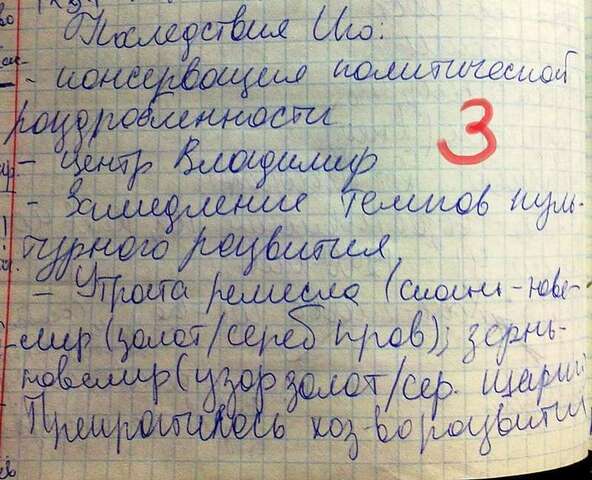 Последствия Ига:
- консервация политической
раздробленности
3
- центр Владимир
- Замедление темпов куль-
турного развития
- Утрата ремесла (скань - юве-
лир (золот/сереб пров); зернь-
ювелир (узор золот/сер. шарик
Прекратилось хоз-во развитие